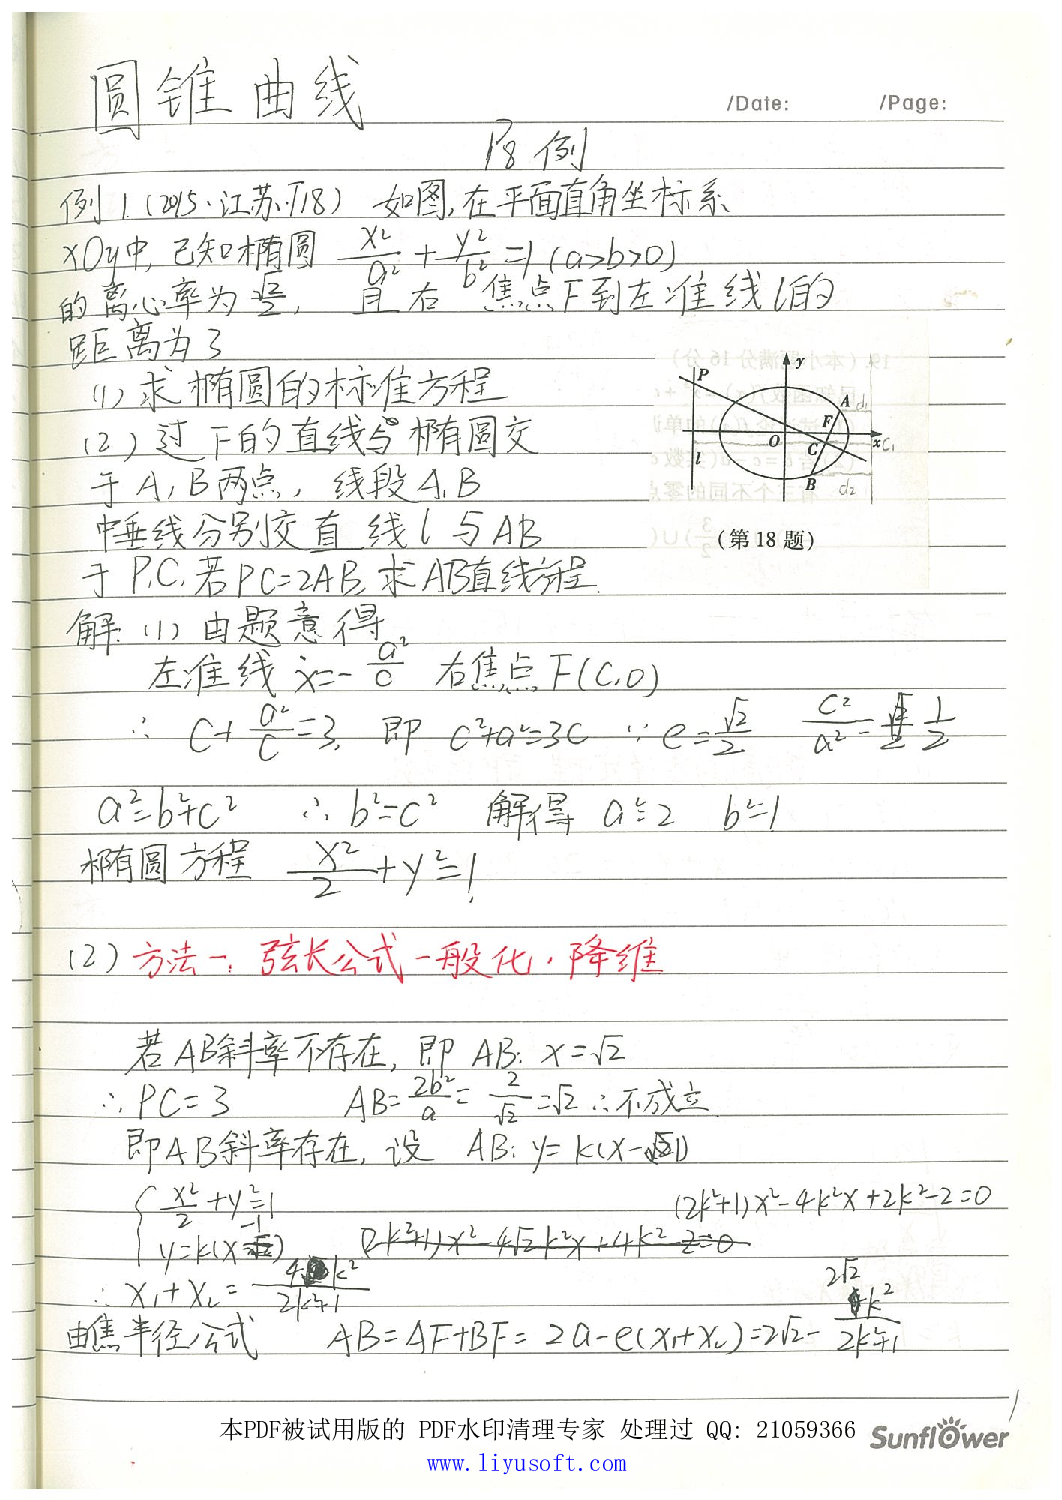 圆锥曲线
/Date: /Page:
P8 例
例1.(2015·江苏·T18) 如图,在平面直角坐标系
xOy中,已知椭圆 x²/a² + y²/b² = 1 (a>b>0)
的离心率为 √2/2, 且右焦点F到左准线l的
距离为3
(1) 求椭圆的标准方程
(2) 过F的直线与椭圆交
于A,B两点, 线段A,B
中垂线分别交直线l与AB
于P,C,若PC=2AB,求AB直线方程
P y A d₁ F O C x C₁ l B d₂
(第18题)
解: (1) 由题意得
左准线 x=-a²/c 右焦点F(C,0)
∴ C+a²/c=3, 即 c²+a²=3c ∵ e=√2/2 c²/a²=1/2
a²=b²+c² ∴ b²=c² 解得 a²=2 b²=1
椭圆方程 x²/2+y²=1
(2) 方法一: 弦长公式一般化·降维
若AB斜率不存在, 即 AB: x=√2
∴ PC=3 AB=2b²/a=2/√2=√2 ∴不成立
即AB斜率存在, 设 AB: y=k(x-1)
x²/2+y²=1 (2k²+1)x²-4k²x+2k²-2=0
y=k(x-1)
∴ x₁+x₂=4k²/2k²+1
由焦半径公式 AB=AF+BF=2a-e(x₁+x₂)=2√2-2√2k²/2k²+1
本PDF被试用版的 PDF水印清理专家 处理过 QQ: 21059366
www.liyusoft.com
Sunflower